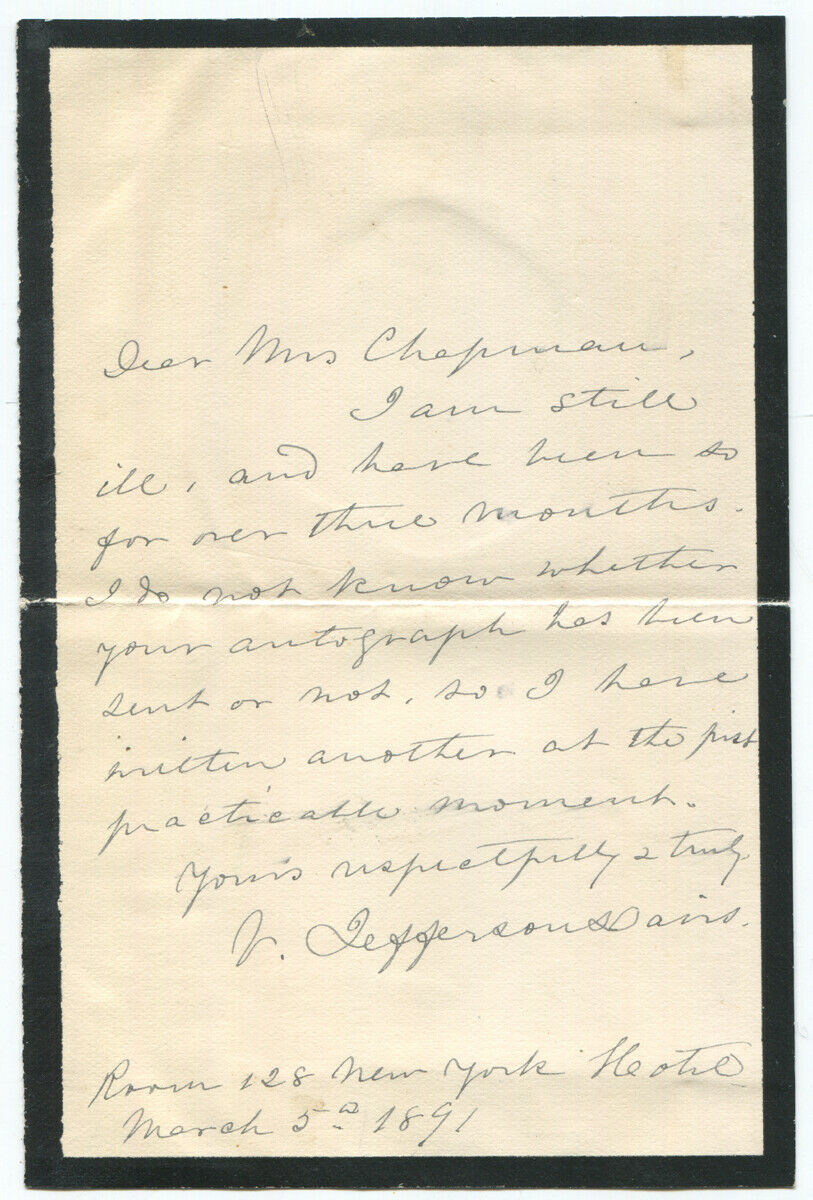 Dear Mrs Chapman,
I am still
ill, and have been so
for over three months.
I do not know whether
your autograph has been
sent or not, so I have
written another at the first
practicable moment.
Yours respectfully & truly
V. Jefferson Davis.
Room 128 New York Hotel
March 5th 1891